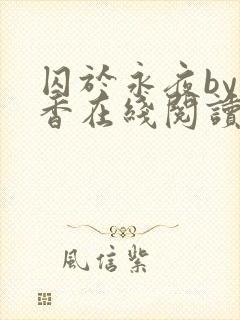 囚於永夜by
香在綫閱讀
風信紫